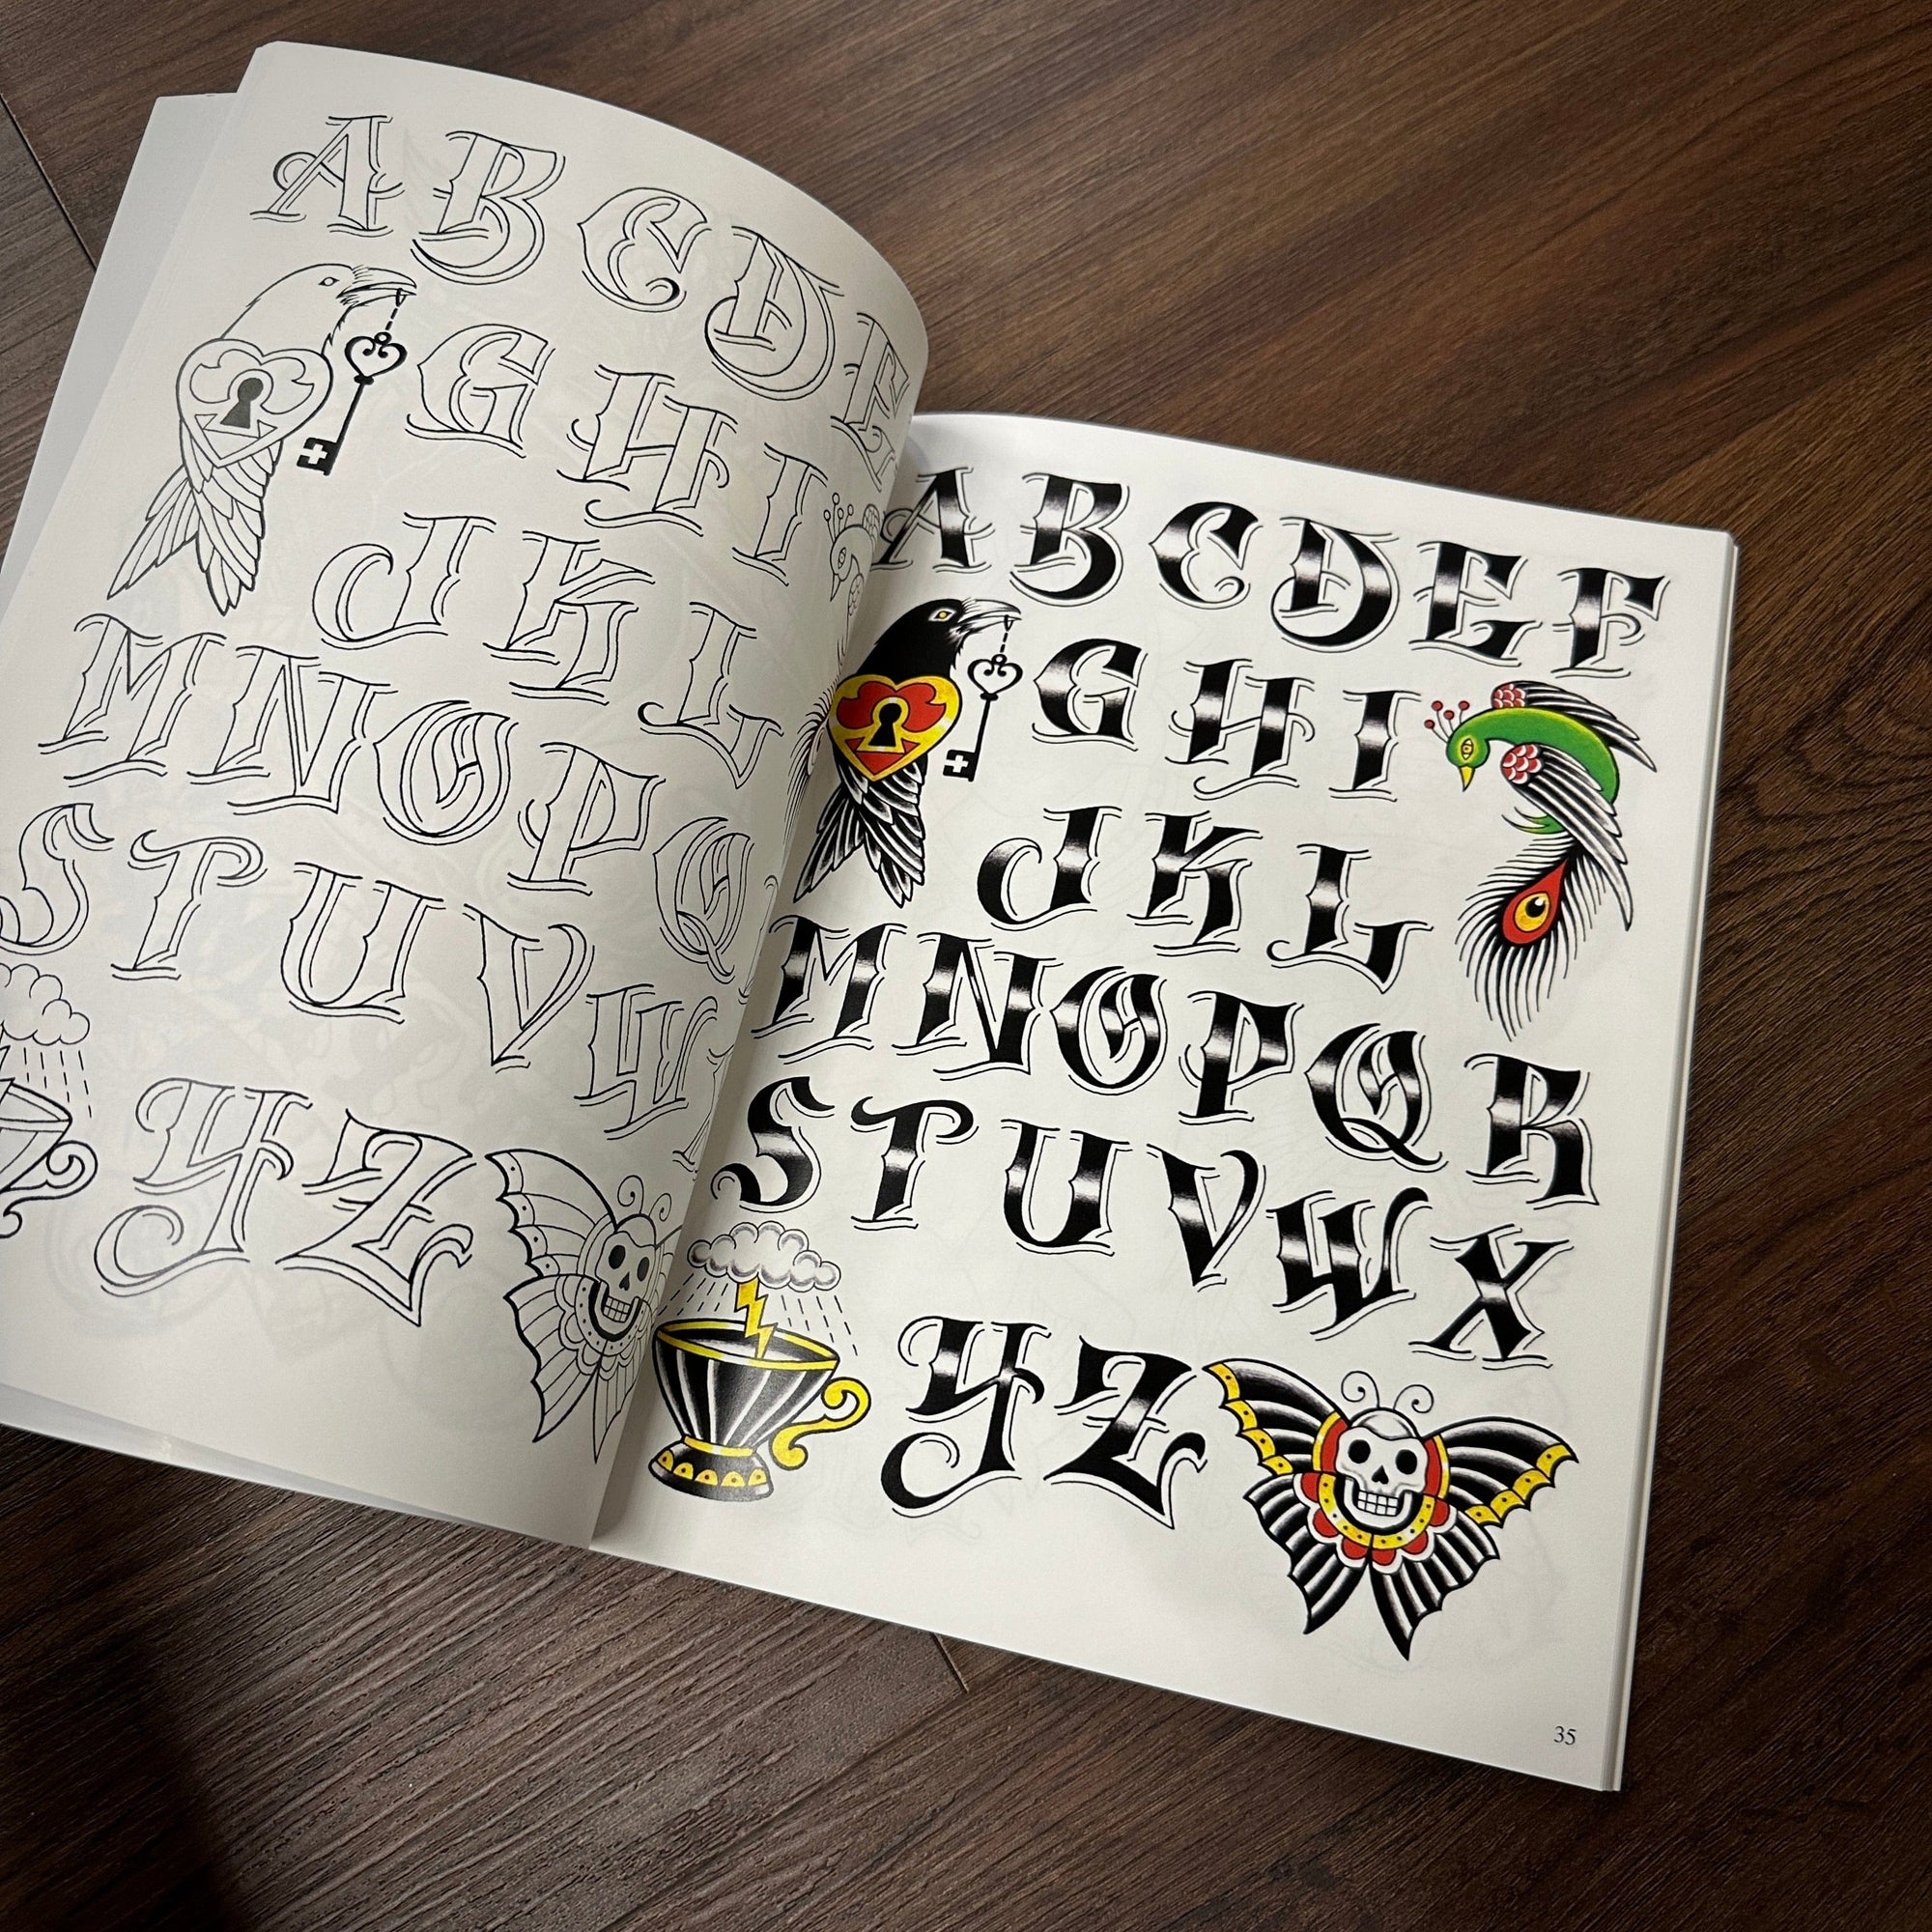 A B C D E
G H I
J K L
M N O P Q
S T U V W
Y Z
A B C D E F
G H I
J K L
M N O P Q R
S T U V W X
Y Z
35